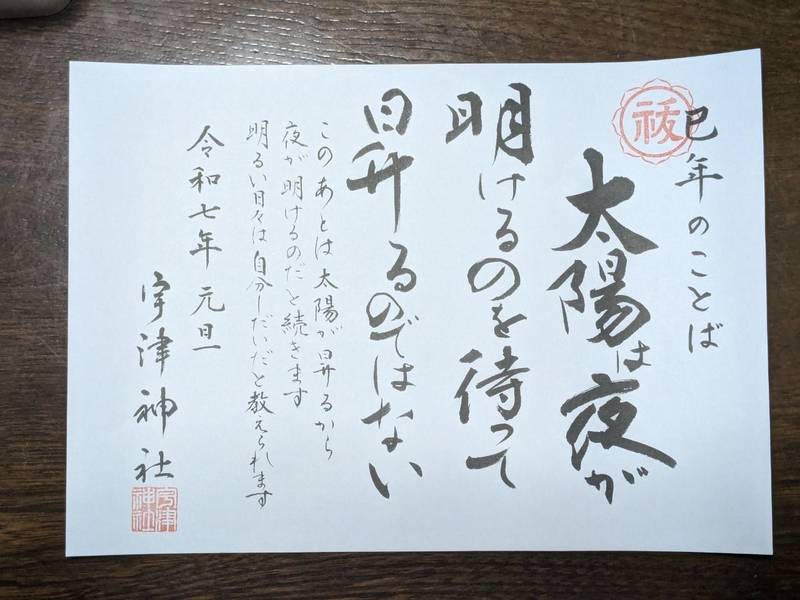 巳年のことば
祓
太陽は夜が
明けるのを待って
昇るのではない
このあとは太陽が昇るから
夜が明けるのだと続きます
明るい日々は自分しだいだと教えられます
令和七年元旦
宇津神社
宇津
神社